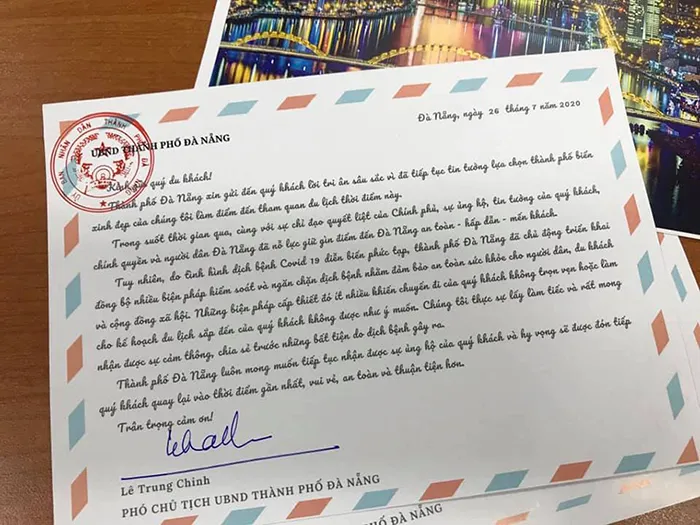 Đà Nẵng, ngày 26 tháng 7 năm 2020
UBND THÀNH PHỐ ĐÀ NẴNG
ỦY BAN NHÂN DÂN THÀNH PHỐ ĐÀ NẴNG
Kính quý du khách!
Thành phố Đà Nẵng xin gửi đến quý khách lời tri ân sâu sắc vì đã tiếp tục tin tưởng lựa chọn thành phố biển
xinh đẹp của chúng tôi làm điểm đến tham quan du lịch thời điểm này.
Trong suốt thời gian qua, cùng với sự chỉ đạo quyết liệt của Chính phủ, sự ủng hộ, tin tưởng của quý khách,
chính quyền và người dân Đà Nẵng đã nỗ lực giữ gìn điểm đến Đà Nẵng an toàn - hấp dẫn - mến khách.
Tuy nhiên, do tình hình dịch bệnh Covid 19 diễn biến phức tạp, thành phố Đà Nẵng đã chủ động triển khai
đồng bộ nhiều biện pháp kiểm soát và ngăn chặn dịch bệnh nhằm đảm bảo an toàn sức khỏe cho người dân, du khách
và cộng đồng xã hội. Những biện pháp cấp thiết đó ít nhiều khiến chuyến đi của quý khách không trọn vẹn hoặc làm
cho kế hoạch du lịch sắp đến của quý khách không được như ý muốn. Chúng tôi thực sự lấy làm tiếc và rất mong
nhận được sự cảm thông, chia sẻ trước những bất tiện do dịch bệnh gây ra.
Thành phố Đà Nẵng luôn mong muốn tiếp tục nhận được sự ủng hộ của quý khách và hy vọng sẽ được đón tiếp
quý khách quay lại vào thời điểm gần nhất, vui vẻ, an toàn và thuận tiện hơn.
Trân trọng cảm ơn!
Lê Trung Chinh
PHÓ CHỦ TỊCH UBND THÀNH PHỐ ĐÀ NẴNG
PHÓ CHỦ TỊCH UBND THÀNH PHỐ ĐÀ NẴNG